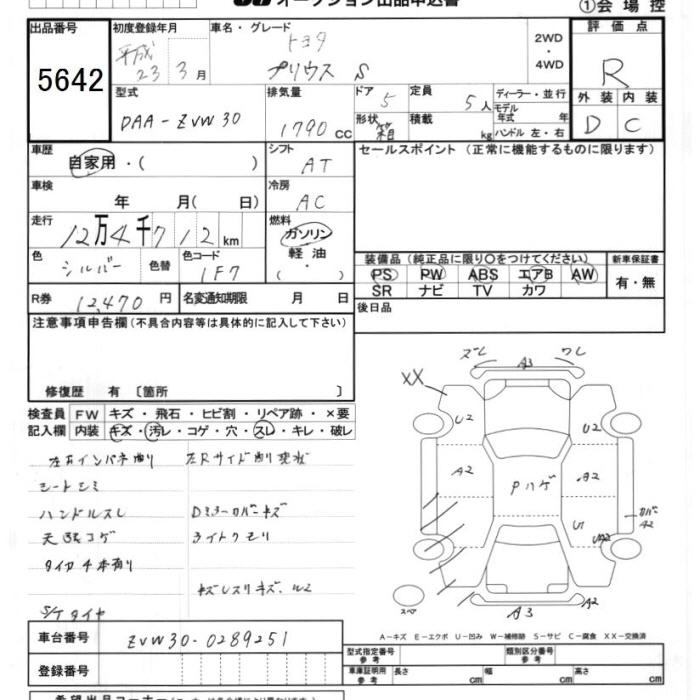 オークション出品申込書
①会場控
出品番号
5642
初度登録年月
平成
23 3月
車名・グレード
トヨタ
プリウス S
2WD
・
4WD
評価点
R
外装 内装
D C
型式
DAA-ZVW30
排気量
1790 CC
ドア
5
定員
5人
形状
積載
kg
ディーラー・並行
モデル
年式 年
ハンドル 左・右
車歴
自家用・( )
シフト
AT
セールスポイント (正常に機能するものに限ります)
車検
年 月( 日)
冷房
AC
走行
12万4千712km
燃料
ガソリン
軽油
( ・ )
色
シルバー
色替
色コード
1F7
装備品(純正品に限り○をつけてください)
PS PW ABS エアB AW
SR ナビ TV カワ
新車保証書
有・無
R券
12,470円
名変通知期限 月 日
後日品
注意事項申告欄(不具合内容等は具体的に記入して下さい)
修復歴 有〔箇所 〕
検査員
記入欄
FW キズ・飛石・ヒビ割・リペア跡・×要
内装 キズ・汚レ・コゲ・穴・スレ・キレ・破レ
シートシミ
ハンドルスレ
Dミラーカバーキズ
ライトクモリ
S/Tタイヤ
ズレ
ワレ
A3
XX
U2
U2
A2
A2
Pハゲ
U1
UA2
カバー
A2
スペア
A3
A2
A-キズ E-エクボ U-凹み W-補修跡 S-サビ C-腐食 XX-交換済
車台番号
ZVW30-0289251
登録番号
型式指定番号
参考
類別区分番号
参考
車庫証明用
参考
長さ cm
幅 cm
高さ cm
希望出品コーナー